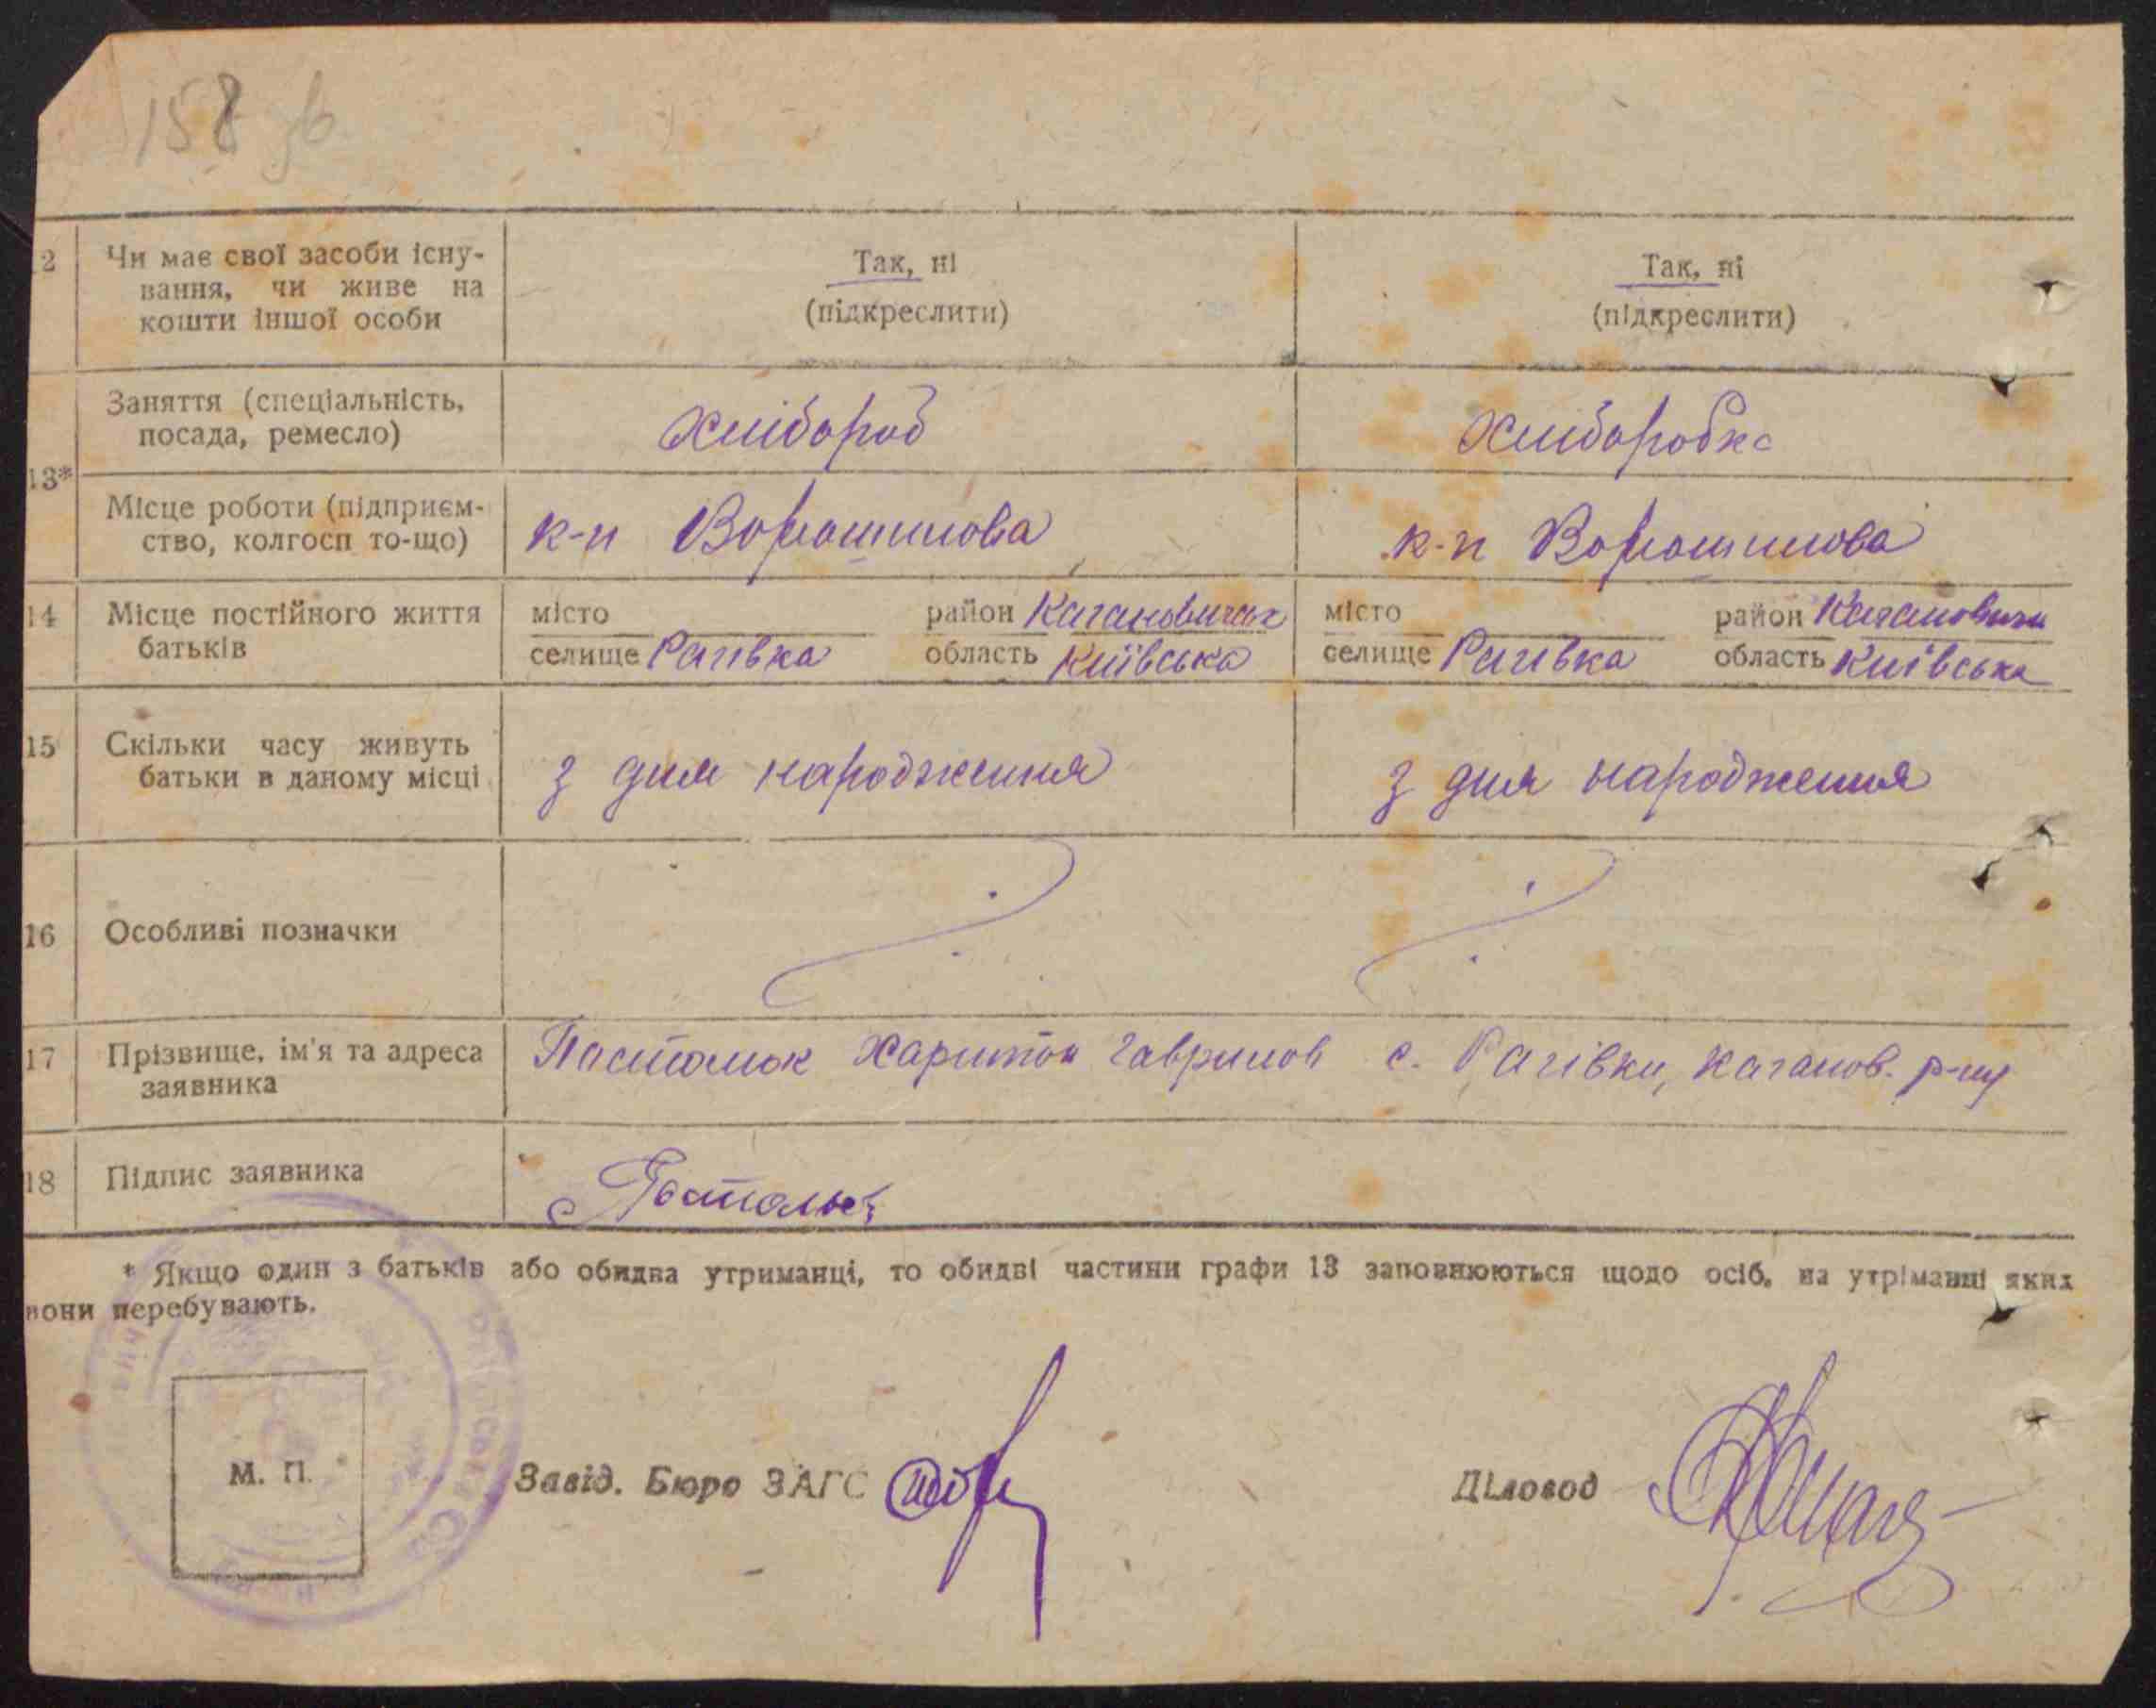 158 зв
12 Чи має свої засоби існу- Так, ні Так, ні
вання, чи живе на (підкреслити) (підкреслити)
кошти іншої особи
Заняття (спеціальність, хлібороб хліборобка
посада, ремесло)
13*
Місце роботи (підприєм- к-п Ворошилова к-п Ворошилова
ство, колгосп то-що)
14 Місце постійного життя місто район Кагановичськ місто район Кагановичи
батьків селище Рагівка область Київська селище Рагівка область Київська
15 Скільки часу живуть з дня народження з дня народження
батьки в даному місці
16 Особливі позначки
17 Прізвище, ім'я та адреса Постолюк Харитон Гаврилов с. Рагівки, Каганов. р-ну
заявника
18 Підпис заявника
* Якщо один з батьків або обидва утриманці, то обидві частини графи 13 заповнюються щодо осіб, на утріманні яких
вони перебувають.
М. П. Завід. Бюро ЗАГС Діловод